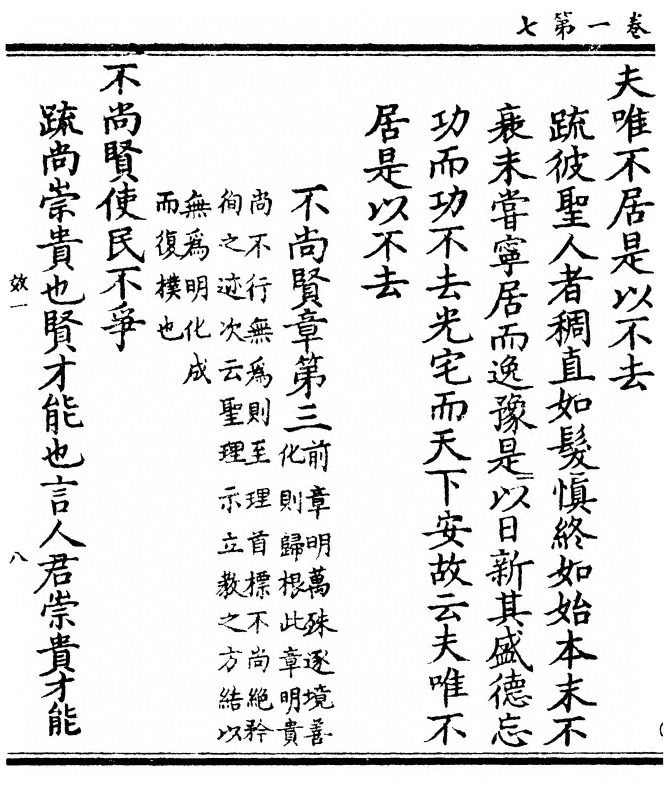 卷一第七
夫唯不居是以不去
疏彼聖人者稠直如髮慎終如始本末不
衰未嘗寧居而逸豫是以日新其盛德忘
功而功不去光宅而天下安故云夫唯不
居是以不去
不尚賢章第三
前章明萬殊逐境善
化則歸根此章明貴
尚不行無為則至理首標不尚絕矜
徇之迹次云聖理示立教之方結以
無為明化成
而復樸也
不尚賢使民不爭
疏尚崇貴也賢才能也言人君崇貴才能
效一
八